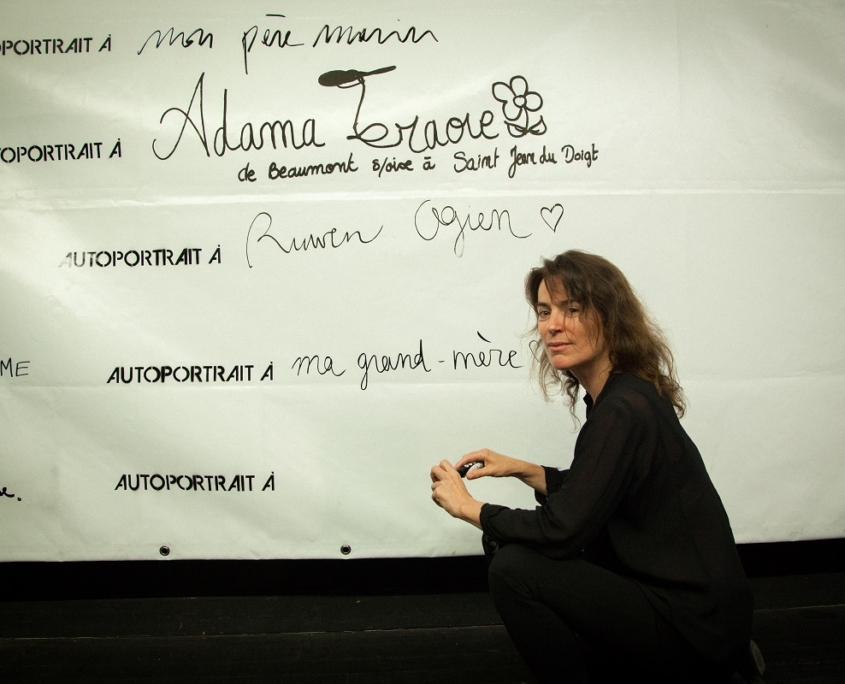 PORTRAIT À mon père marin
TOPORTRAIT À Adama Traore
de Beaumont s/oise à Saint Jean du Doigt
AUTOPORTRAIT À Ruwen Ogien
ME
AUTOPORTRAIT À ma grand-mère
AUTOPORTRAIT À